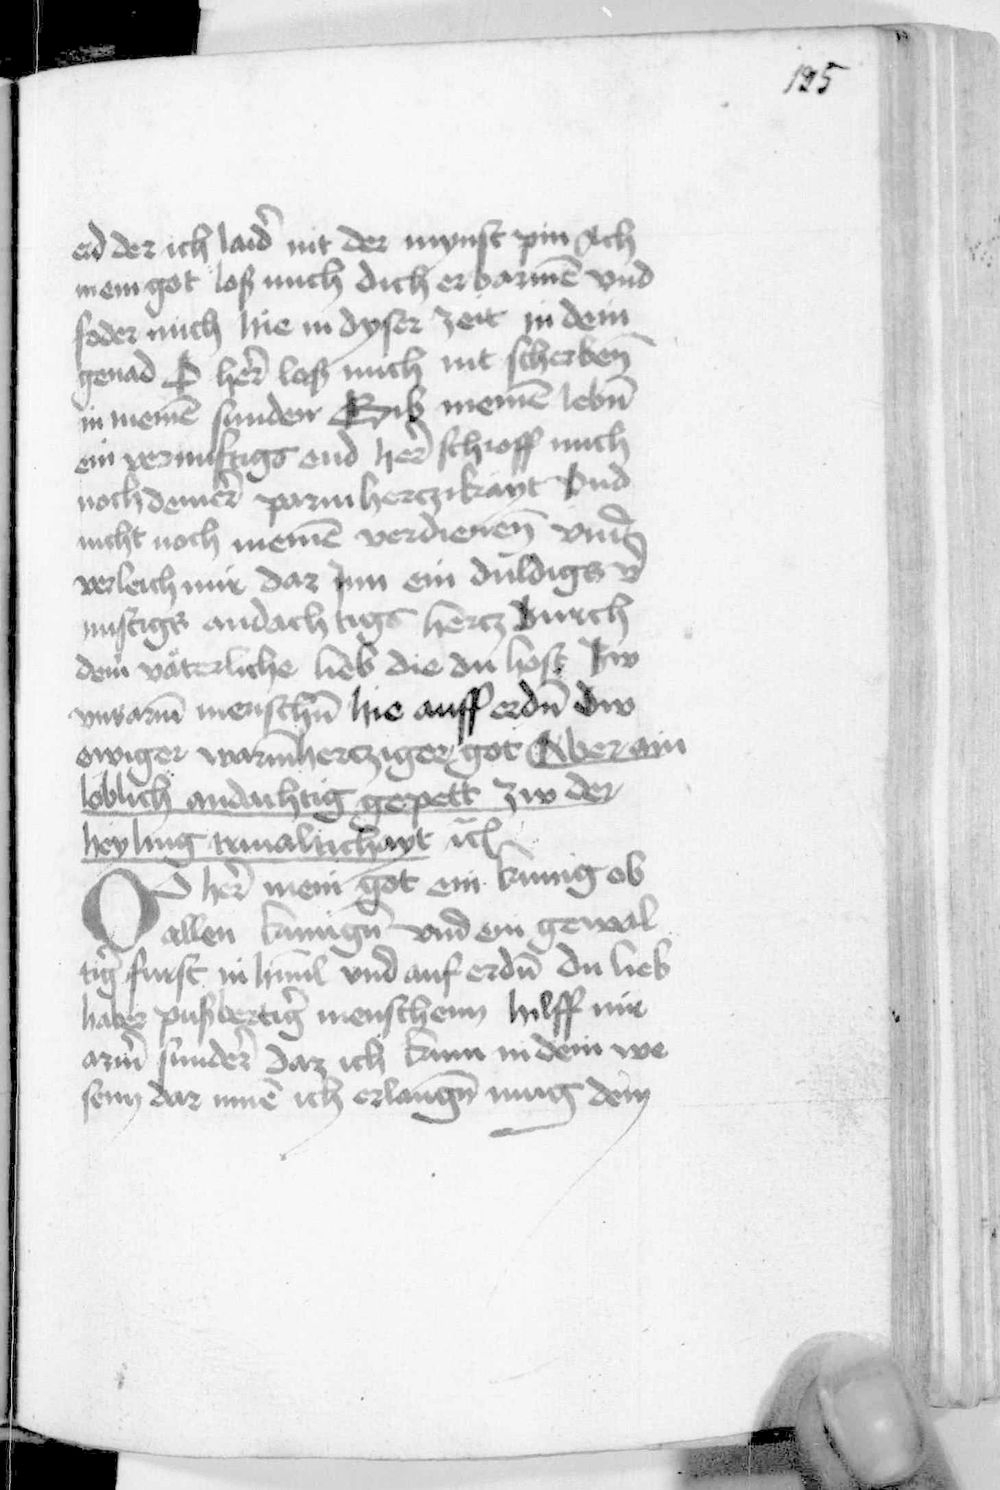 195
erd der ich laid̄ nit der mynst pin Ach
mein got loß mich dich erbarmē vnd
foder mich hie in dyser zeit in dein
genad O her̄ laß mich nit sterben̄
in meinē sunden Gib meinē lebn̄
ein vernuftigs end her̄ schoff mich
noch deiner̄ parmhertzikayt Vnd
nicht noch meinē verdienen̄ vnd
verleich mir dar Inn ein duldigs v̄
nuftigs andachtigs hertz Durch
dein väterliche lieb die du host zw
vns arm̄ menschn̄ hie auff erdn̄ Dw
ewiger warm̄hertziger got Aber ain
loblich andachtig gepett zw der
heyling triualtichayt ꝛc̄
O her̄ mein got ein kunig ob
allen kunign̄ vnd ein gewal
tiḡ furst in himl̄ vnd auf erdn̄ du lieb
haber pußvertiḡ menschenn hilff mir
arm̄ sunder̄ daz ich kum in dein we
senn dar inne ich erlangn̄ mug dein